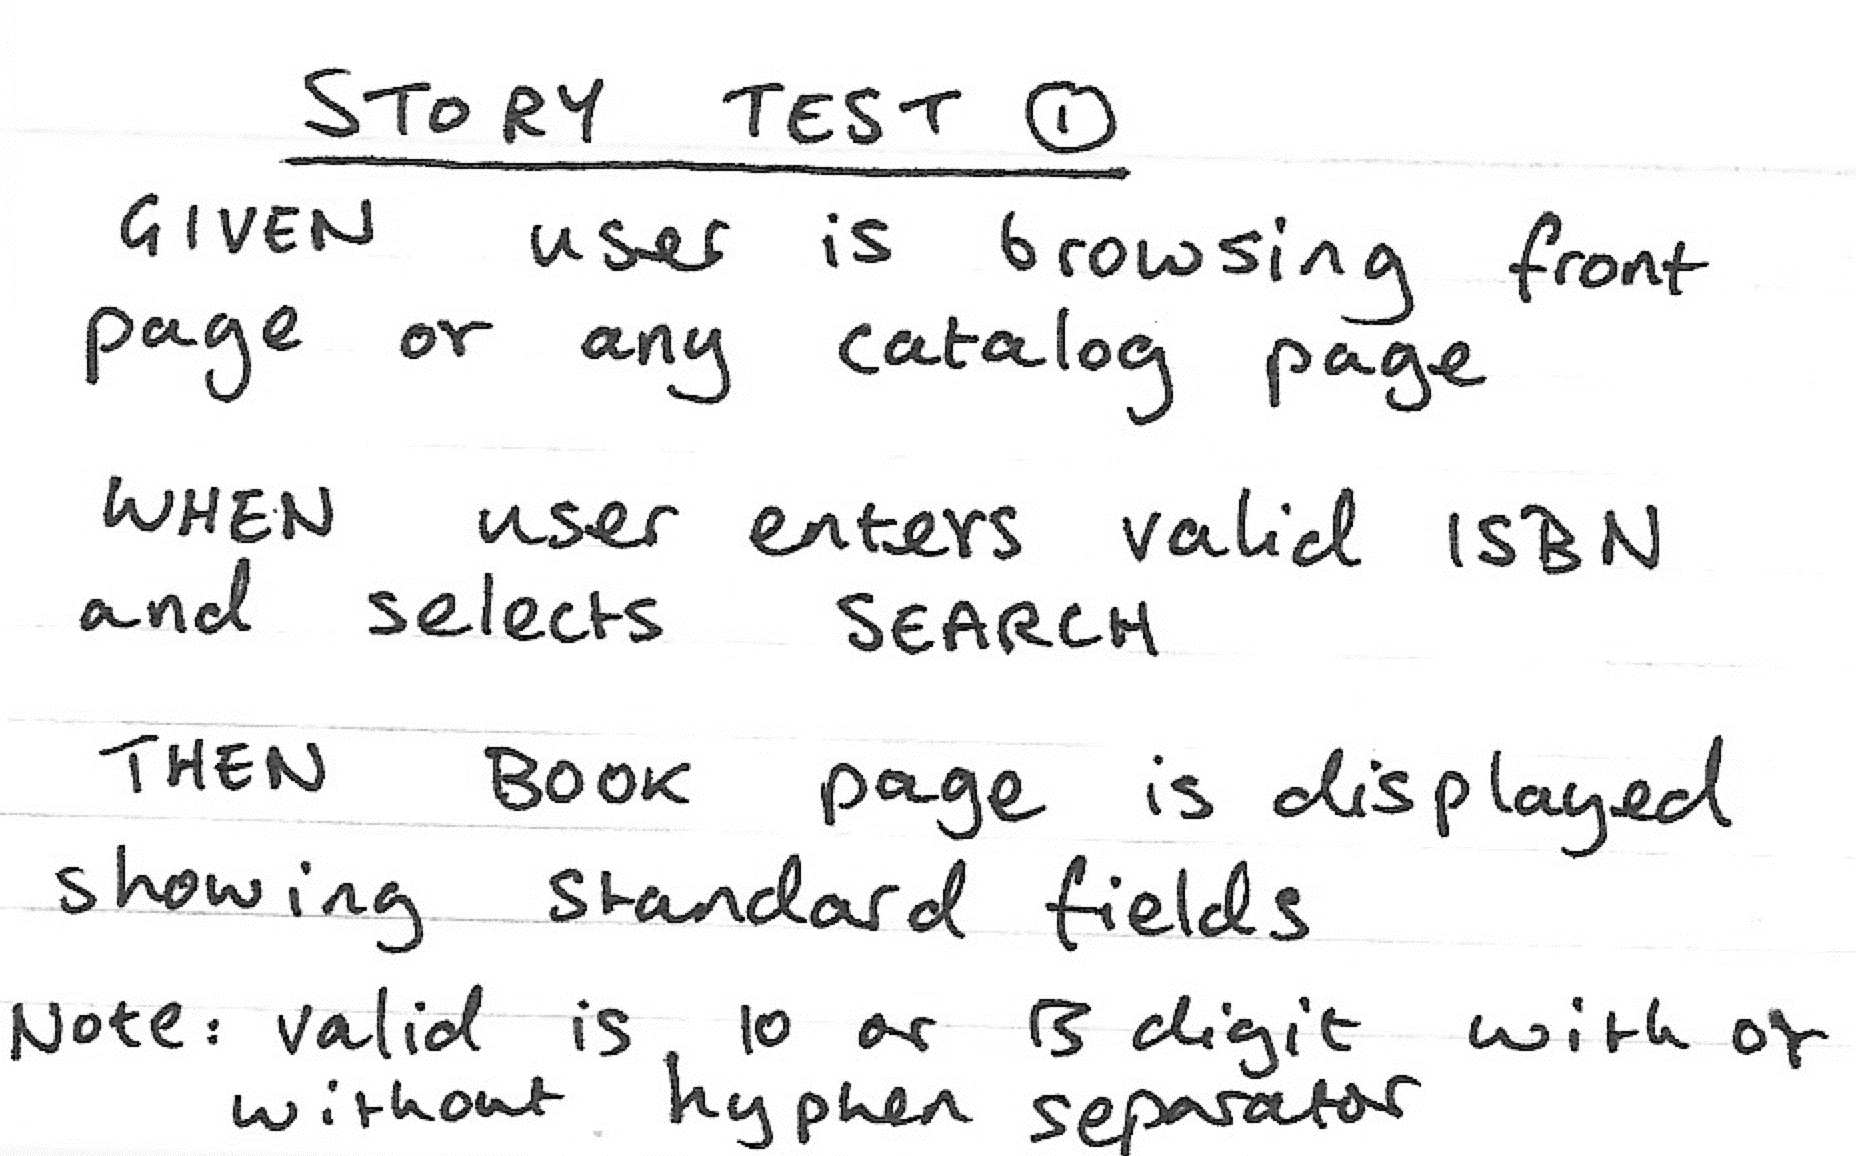 STORY TEST ①
GIVEN user is browsing front
page or any catalog page
WHEN user enters valid ISBN
and selects SEARCH
THEN BOOK page is displayed
showing standard fields
Note: valid is 10 or 13 digit with or
without hyphen separator